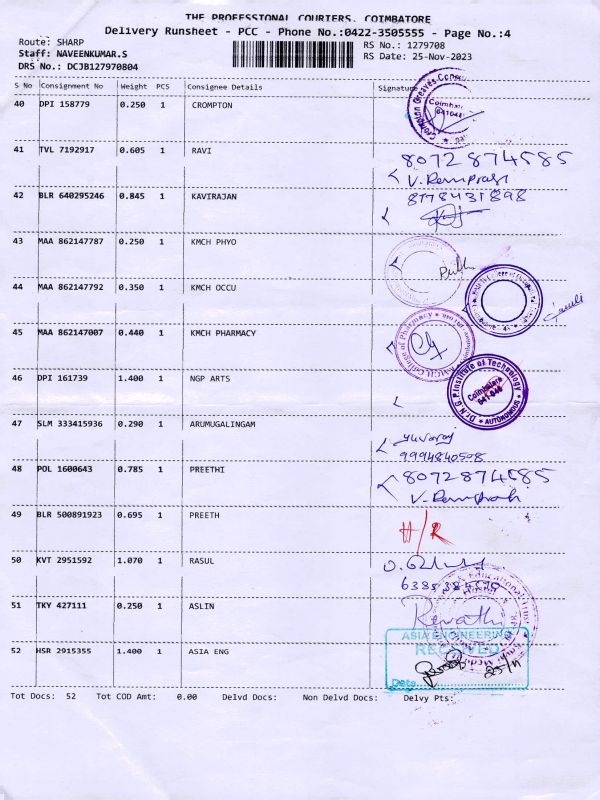 THE PROFESSIONAL COURIERS, COIMBATORE
Delivery Runsheet - PCC - Phone No.:0422-3505555 - Page No.:4
Route: SHARP RS No.: 1279708
Staff: NAVEENKUMAR.S RS Date: 25-Nov-2023
DRS No.: DCJB127970804
S No Consignment No Weight PCS Consignee Details Signature
40 DPI 158779 0.250 1 CROMPTON
Crompton Greaves
Coimbatore
41 TVL 7192917 0.605 1 RAVI
8072874585
V. Ramprasath
42 BLR 640295246 0.845 1 KAVIRAJAN
8178431898
43 MAA 862147787 0.250 1 KMCH PHYO
44 MAA 862147792 0.350 1 KMCH OCCU
45 MAA 862147007 0.440 1 KMCH PHARMACY
KMCH College of Pharmacy
46 DPI 161739 1.400 1 NGP ARTS
Dr. N.G.P. Institute of Technology
Coimbatore
641 048
AUTONOMOUS
47 SLM 333415936 0.290 1 ARUMUGALINGAM
Yuvaraj
9994840598
48 POL 1600643 0.785 1 PREETHI
8072874585
V. Ramprasath
49 BLR 500891923 0.695 1 PREETH
H/R
50 KVT 2951592 1.070 1 RASUL
51 TKY 427111 0.250 1 ASLIN
Educational Trust
Revathi
52 HSR 2915355 1.400 1 ASIA ENG
ASIA ENGINEERING
RECEIVED
25/11
Date
Tot Docs: 52 Tot COD Amt: 0.00 Delvd Docs: Non Delvd Docs: Delvy Pts: